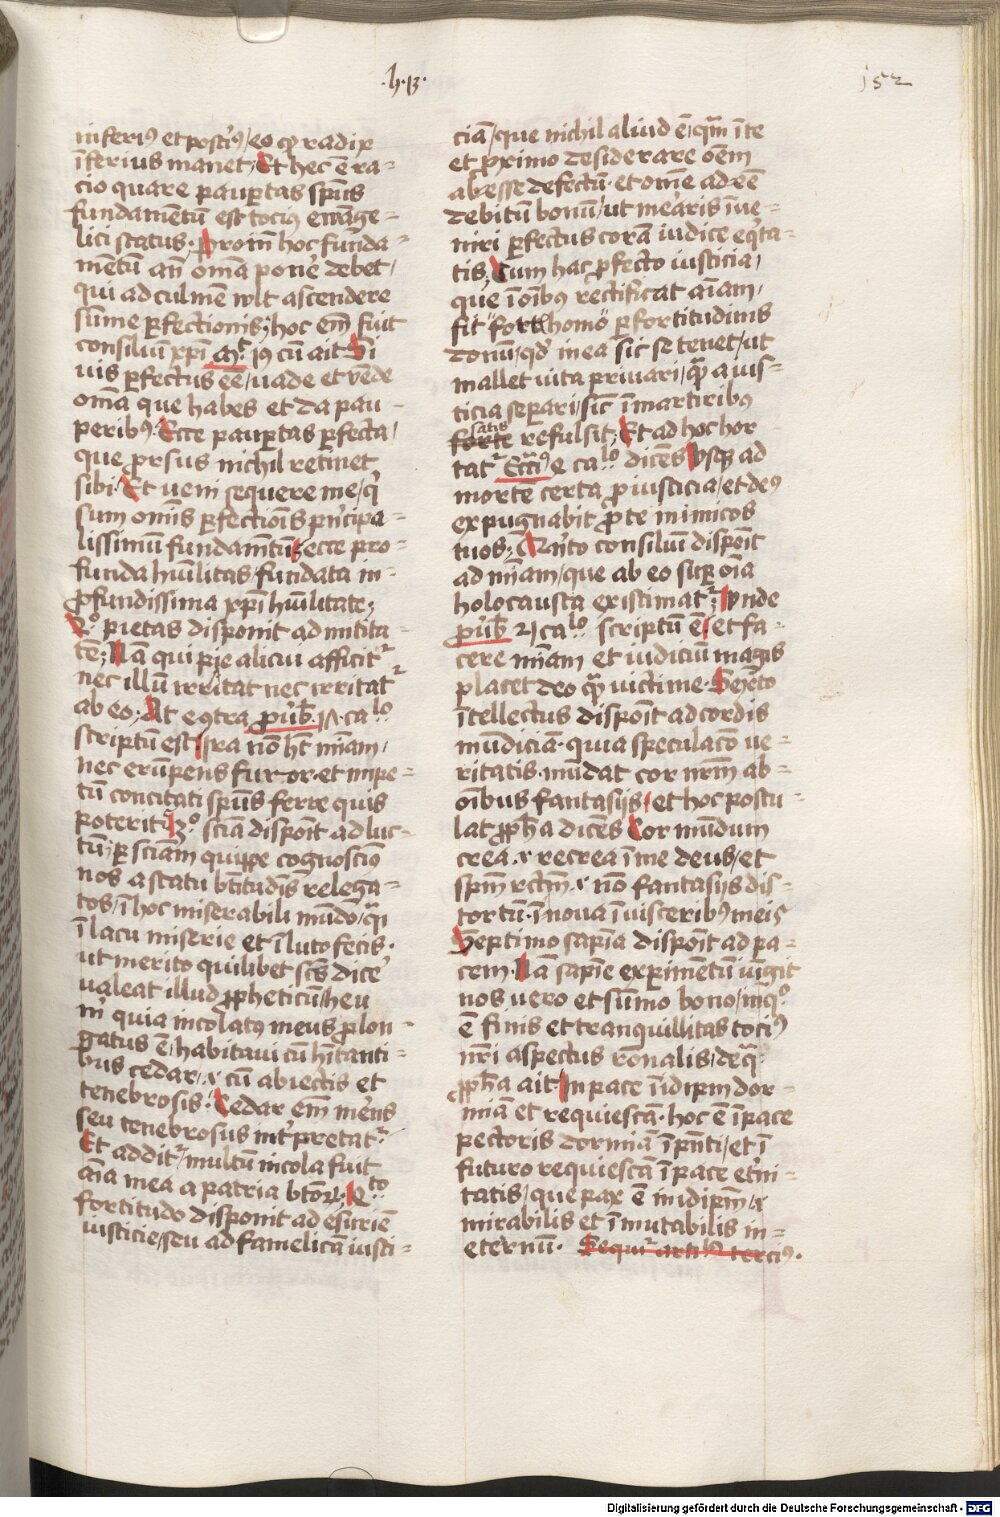 ·h·13·
152
inferiꝰ et post'iꝰ, eo ꝙ radix
īferius manet. Et hec ē ra=
cio quare pauꝑtas sp̄us
fundamētū est tociꝰ ewāge=
lici status. hoc funda=
mētū an̄ om̄ia pone' debet,
qui ad culmē wlt ascendere
sūme ꝑfectionis; hoc em̄ fuit
consiliū xp̄i cū ait Si
vis ꝑfectus eē, vade et vēde
om̄ia que habes et da pau=
peribꝰ. Ecce pauꝑtas ꝑfecta,
que prorsus nichil retinet
sibi. Et veni sequere me, q'
sum om̄is ꝑfectiōis pn'cipa=
lissimū fundam̄tū; ecce pro=
funda hūilitas, fundata in=
profundissima xp̄i hūilitate;
2º pietas disponit ad mitita=
tē; Nā qui pie alicui afficitr
nec illū irritat nec irritatr
ab eo; At eꝯtra puͥb 27 caͦlo
scriptū est. Ira nō hꝫ mīam,
nec erūpens furor. et impe=
tū concitati sp̄us ferre quis
poterit. 3º sciā dispōit ad luc=
tū, ꝑ sciam quippe cognosciꝰ
nos a statu btītudīs relega=
tos, ī hoc miserabili mūdo, qͣi
ī lacu miserie et ī luto fecis.
ut merito quilibet scs̄ dice'
valeat illud ꝓpheticū, heu
m' quia incolatꝰ meus prolon=
gatus ē, habitavi cū hītanti=
bus cedar, .i. cū abiectis et
tenebrosis. Cedar em̄ me'ns
seu tenebrosus int'pretatr.
Et additr, multū incola fuit
aīa mea a patria btōꝝ, 4to
fortitudo disponit ad esuriē
iusticie, seu ad famelicā iusti=
ciā, que nichil aliud ē, qͣm ī te
et proximo desiderare oēm
abesse defectū. et omē adeē
debitū bonū, ut me'aris īve=
niri ꝑfectus corā iudice eqͥta=
tis; Cum hac ꝑfecto iusticia,
que ī oībꝰ rectificat aīam,
fit fort homo ꝑ fortitudinis
donū, qd' in ea sic se tenet, ut
mallet vita privari, qͣ a ius=
ticia separi, sic ī martiribꝰ
satis
forte refulsit; Et ad hoc hor=
tatr Ecciꝰ e caͦlo dicēs Vsqꝫ ad
mortē certa pro iusticia, et deꝰ
expugnabit pro te inimicos
tuos; Qn'to consiliū dispōit
ad mīam, que ab eo suꝑ oīa
holocausta existimatr; Vnde
puͥb 21 caͦlo scriptū ē, et fa=
cere mīam et iudiciū magis
placet deo qͣ victime. Sexto
ītellectus dispōit ad cordis
mūdiciā. quia speculacō ve=
ritatis. mūdat cor nrm̄ ab=
oībus fantasijs, et hoc postu=
lat ꝓph̄a dicēs Cor mūdum
crea .i. recrea ī me deus, et
spm̄ rctm̄ .i. nō fantasijs dis=
tortū. īnova ī visceribꝰ meis
Septimo sapīa dispōit ad pa=
cem. Nā sapīe exꝑimētū vīgit
nos vero et sūmo bono, in qͦ
ē finis et tranquillitas tociꝰ
nr̄i aspectus rōnalis, de qͣ
ꝓph̄a ait, In pace ī idipm̄ dor=
miā et requiescā. hoc ē ī pace
pectoris dormiā ī pn̄ti, et ī
futuro requiescā ī pace et'ni=
tatis, que pax ē in idipm̄, .i.
mirabilis et īmutabilis in=
eternū. Sequitr arti'lꝰ terciꝰ.
Digitalisierung gefördert durch die Deutsche Forschungsgemeinschaft - DFG